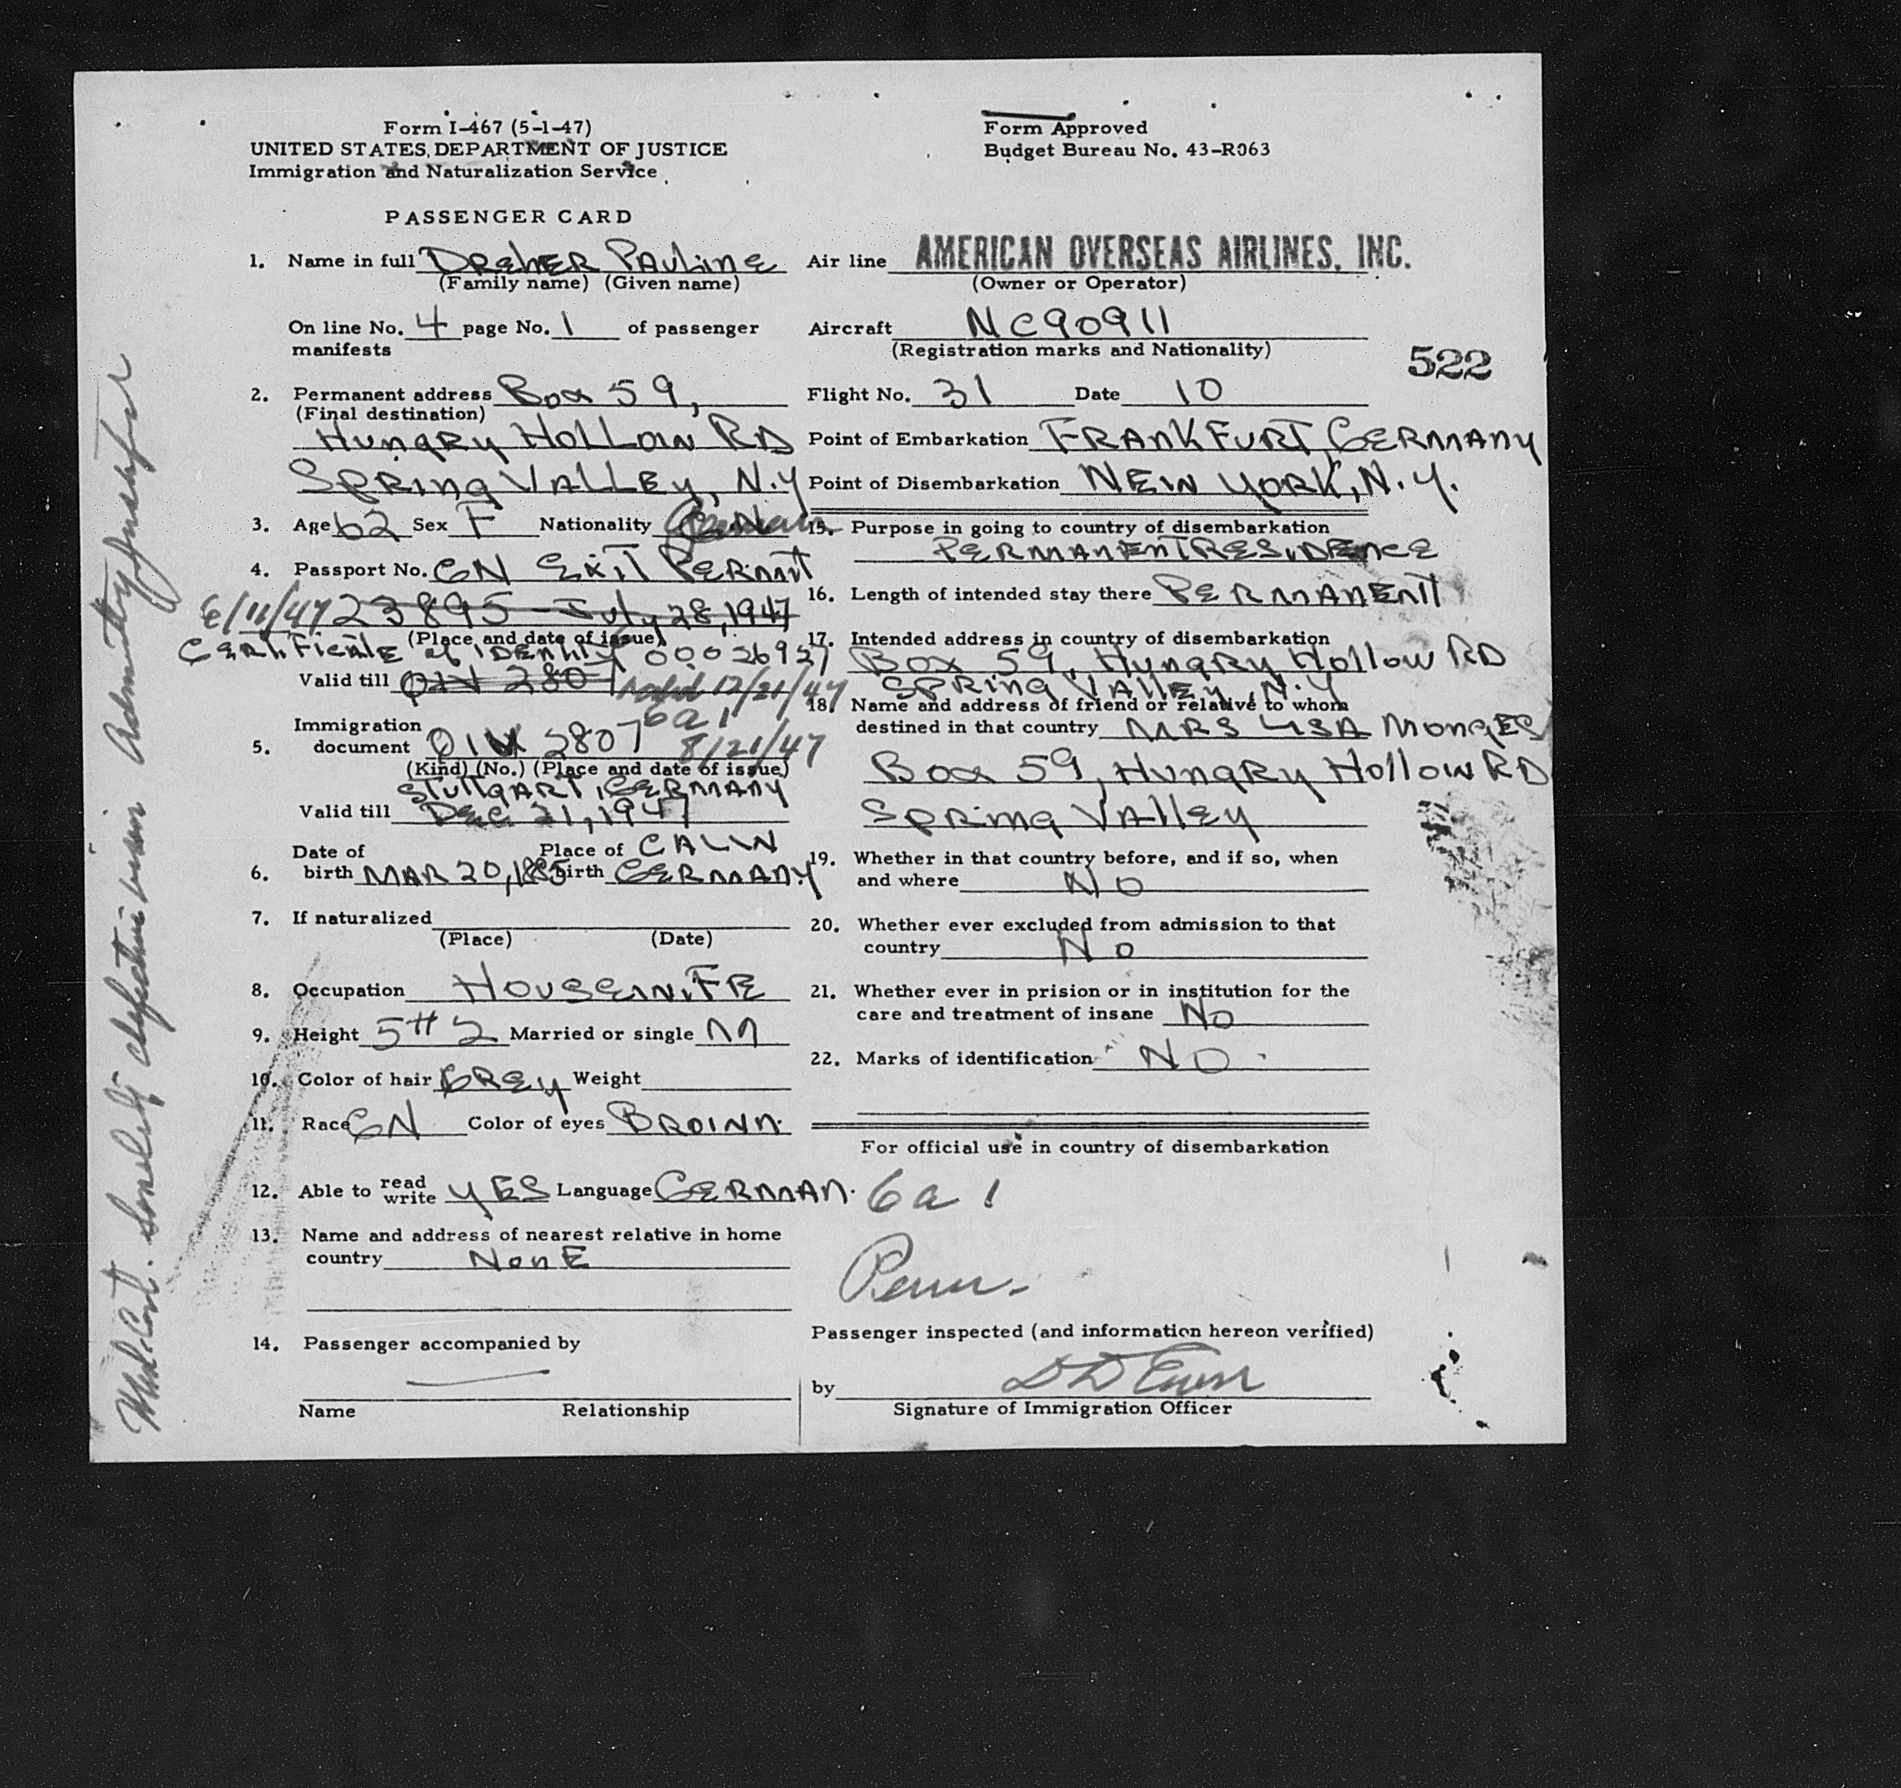 Form I-467 (5-1-47)
UNITED STATES DEPARTMENT OF JUSTICE
Immigration and Naturalization Service
Form Approved
Budget Bureau No. 43-R063
PASSENGER CARD
1. Name in full DREHER PAULINE
(Family name) (Given name)
On line No. 4 page No. 1 of passenger
manifests
2. Permanent address Box 59,
(Final destination)
HUNGRY HOLLOW RD
SPRING VALLEY, N.Y
3. Age 62 Sex F Nationality German
4. Passport No. GN EXIT PERMIT
6/11/47 23895 - July 28, 1947
(Place and date of issue)
Certificate of IDENTITY 00026927
Valid till QIV 280 valid 12/21/47
6a1
Immigration
5. document QIV 2807 8/21/47
(Kind) (No.) (Place and date of issue)
STUTTGART, GERMANY
Valid till DEC 21, 1947
Date of Place of CALW
6. birth MAR 20, 1885 birth GERMANY
7. If naturalized
(Place) (Date)
8. Occupation HOUSEWIFE
9. Height 5 H 2 Married or single M
10. Color of hair GREY Weight
11. Race GN Color of eyes BROWN
12. Able to read write YES Language GERMAN.
13. Name and address of nearest relative in home
country NONE
14. Passenger accompanied by
Name Relationship
Air line AMERICAN OVERSEAS AIRLINES, INC.
(Owner or Operator)
Aircraft NC90911
(Registration marks and Nationality)
522
Flight No. 31 Date 10
Point of Embarkation FRANKFURT, GERMANY
Point of Disembarkation NEW YORK, N.Y.
15. Purpose in going to country of disembarkation
PERMANENT RESIDENCE
16. Length of intended stay there PERMANENT
17. Intended address in country of disembarkation
Box 59, Hungry Hollow RD
SPRING VALLEY, N.Y
18. Name and address of friend or relative to whom
destined in that country MRS LISA MONGES
Box 59, HUNGRY HOLLOW RD
SPRING VALLEY
19. Whether in that country before, and if so, when
and where NO
20. Whether ever excluded from admission to that
country NO
21. Whether ever in prision or in institution for the
care and treatment of insane NO
22. Marks of identification NO.
For official use in country of disembarkation
6a1
Perm.
Passenger inspected (and information hereon verified)
by
Signature of Immigration Officer
Med. Cert. Senility defective vision